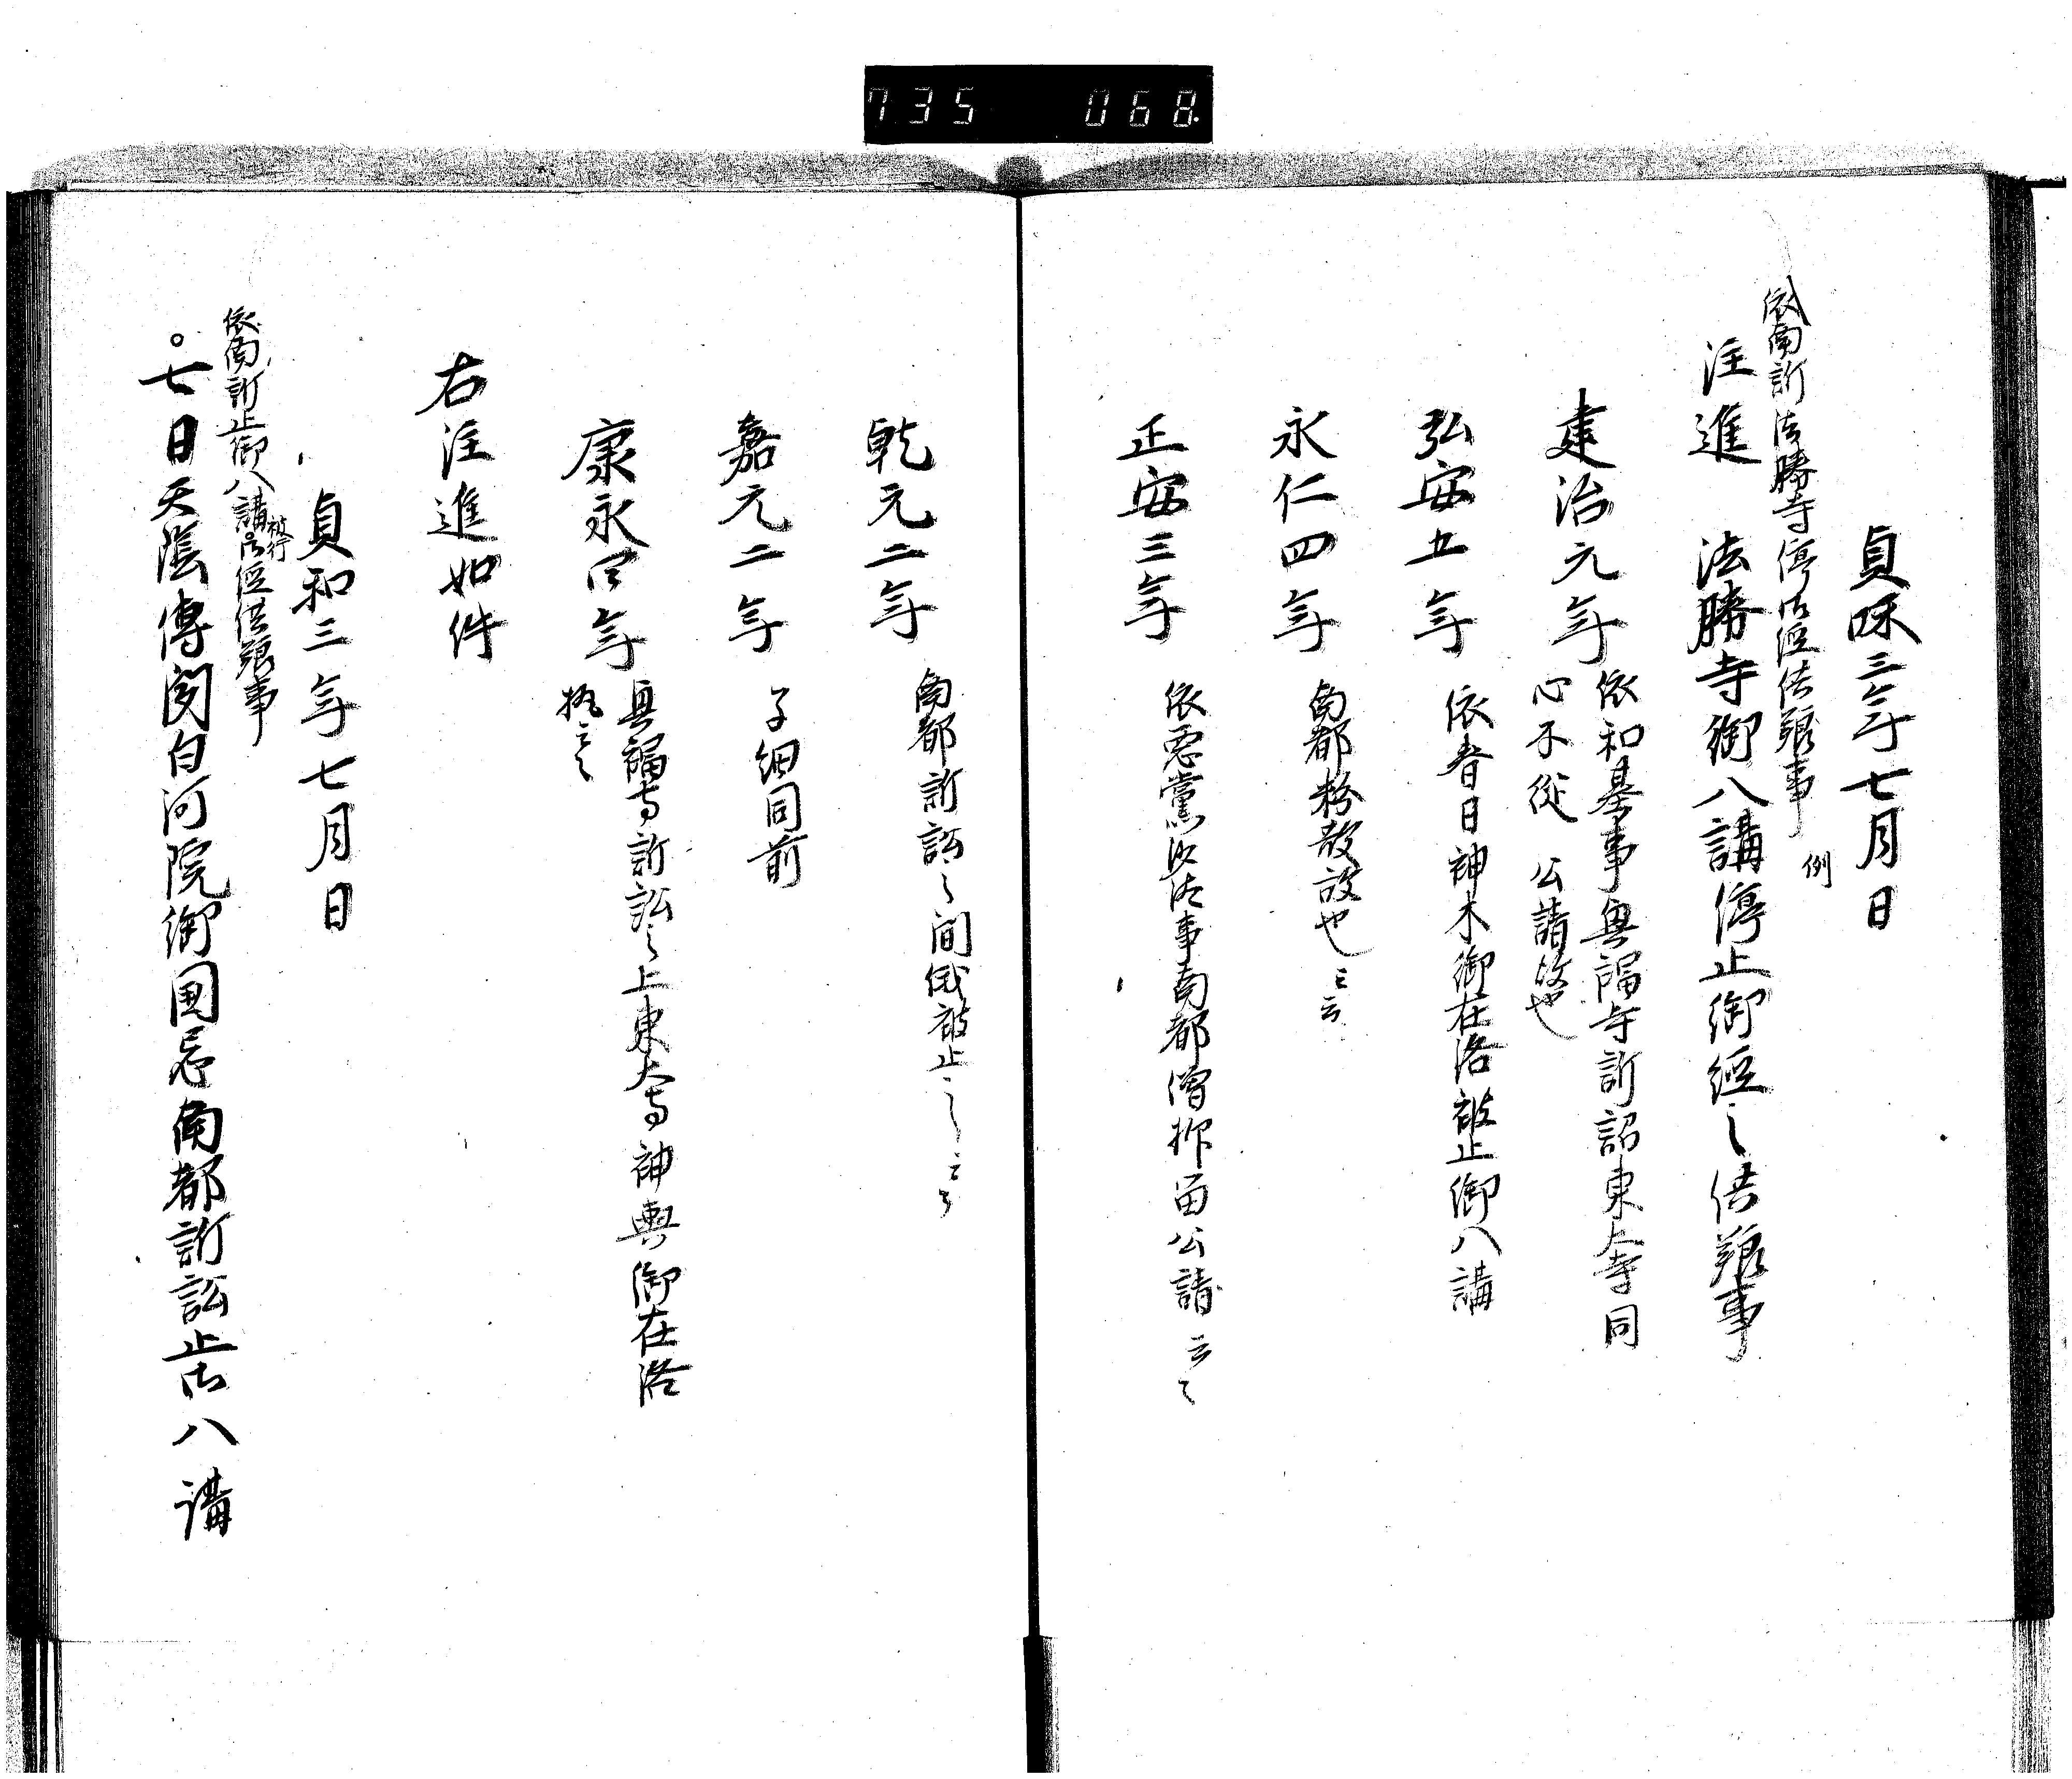 735 068
貞和三年七月日
依南訴法勝寺停御経供養事
例
注進 法勝寺御八講停止御経之供養事
建治元年 依和基事興福寺訴詔東大寺同
心不従 公請故也
弘安五年 依春日神木御在洛被止御八講
永仁四年 南都物忩故也云云
正安三年 依悪党沙汰事南都僧抑留公請云々
乾元二年 南都訴訟之間俄被止之云々
嘉元二年 子細同前
康永四年 興福寺訴訟之上東大寺神輿御在洛
故云々
右注進如件
貞和三年七月日
依南訴止御八講被行御経供養事
七日天陰伝聞白河院御国忌南都訴訟止御八講